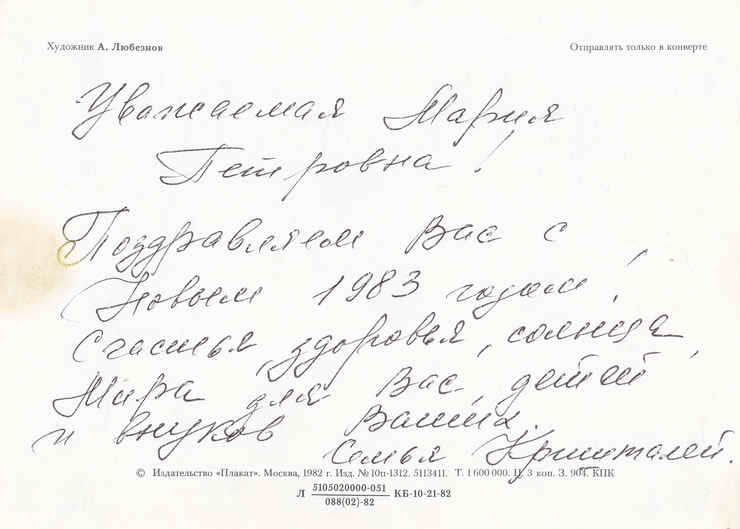 Художник А. Любезнов
Отправлять только в конверте
Уважаемая Мария
Петровна!
Поздравляем Вас с
Новым 1983 годом!
Счастья, здоровья, солнца,
Мира для Вас, детей
и внуков Ваших.
Семья
© Издательство «Плакат». Москва, 1982 г. Изд. № 10п-1312. 5113411. Т. 1 600 000. Ц. 3 коп. З. 904. КПК
Л 5105020000-051 КБ-10-21-82
088(02)-82